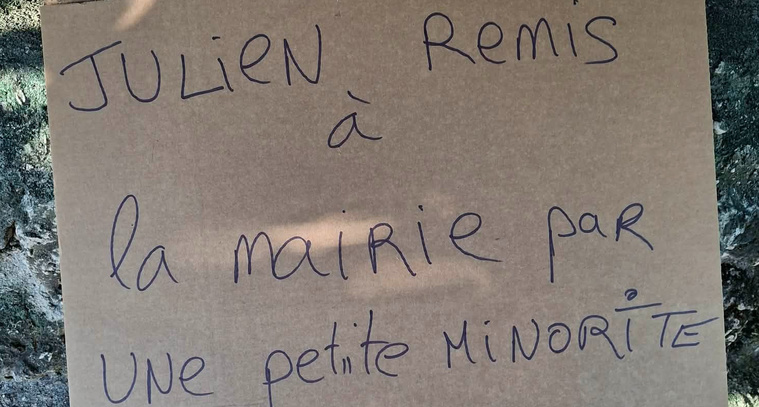 JULiEN Remis
à
la maiRie paR
UNe petite MiNORiTE